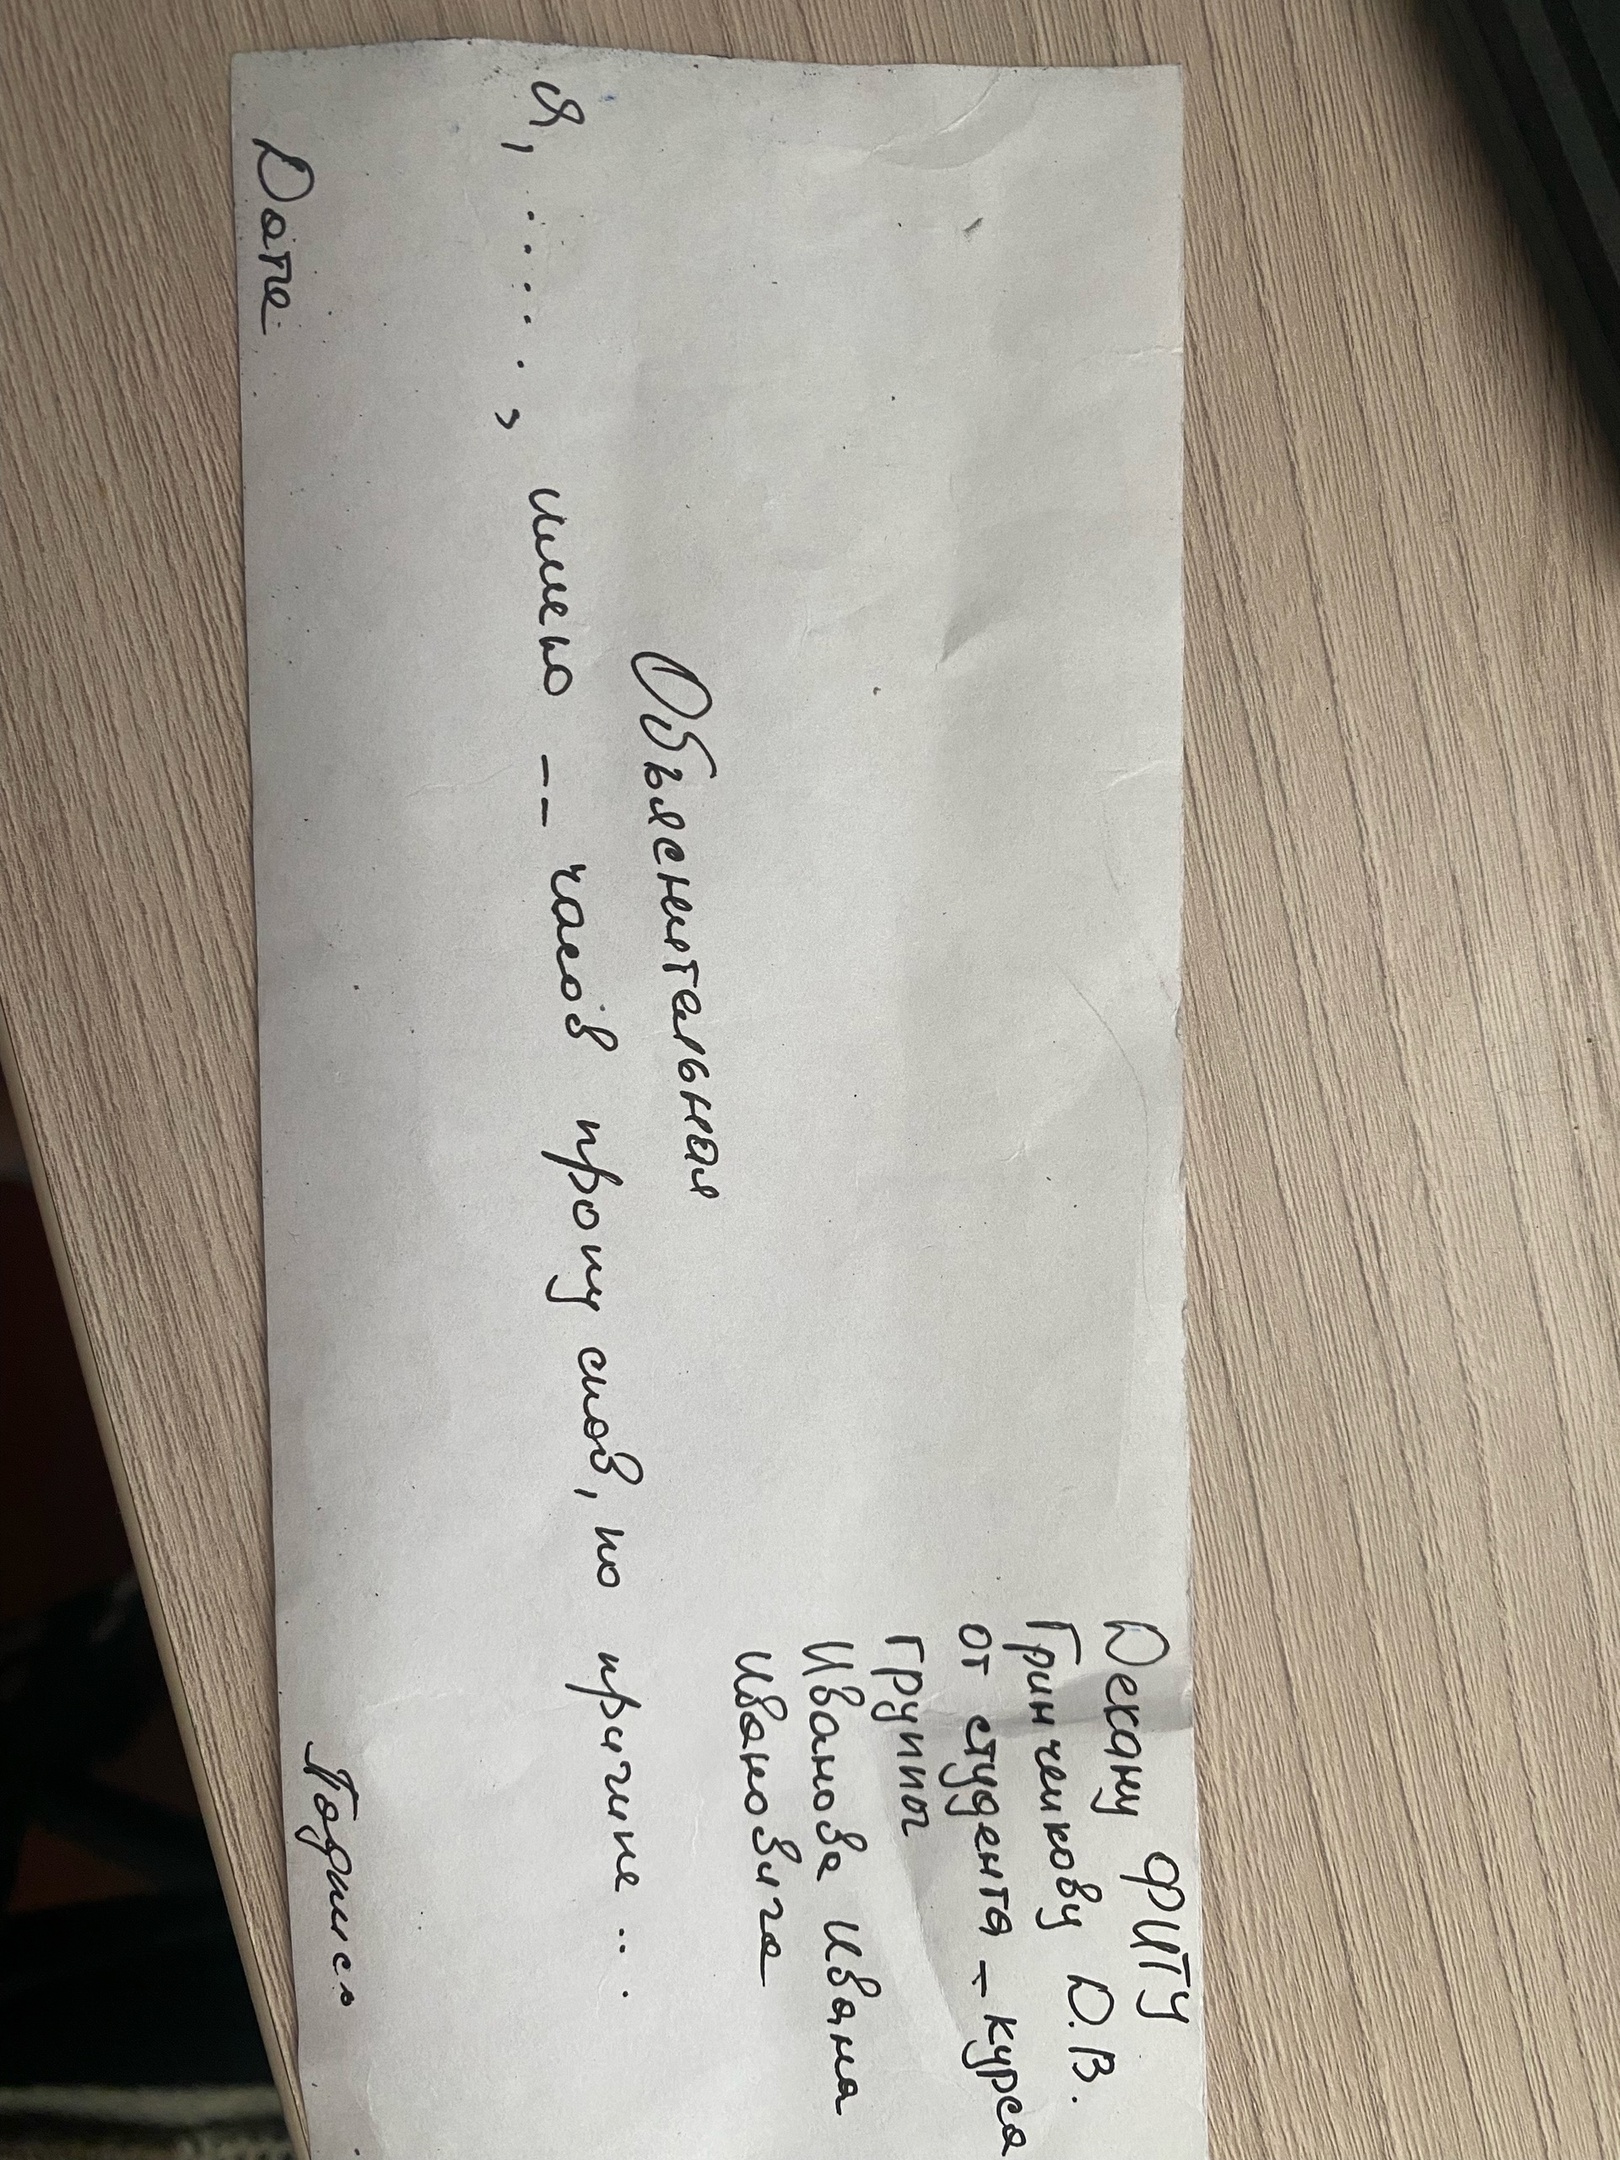 Декану ФИТУ
Гринченкову Д.В.
от студента _ курса
группы
Иванова Ивана
Ивановича
Объяснительная
Я, ......, имею __ часов пропусков, по причине ...
Дата
Подпись